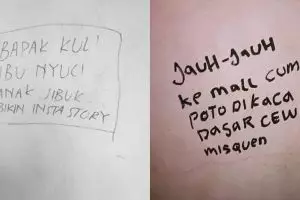 BAPAK KULI
IBU NYUCI
ANAK SIBUK
BIKIN INSTA STORY
JAUH-JAUH
ke mall CUM
POTO DI KACA
DASAR CEW
misquen